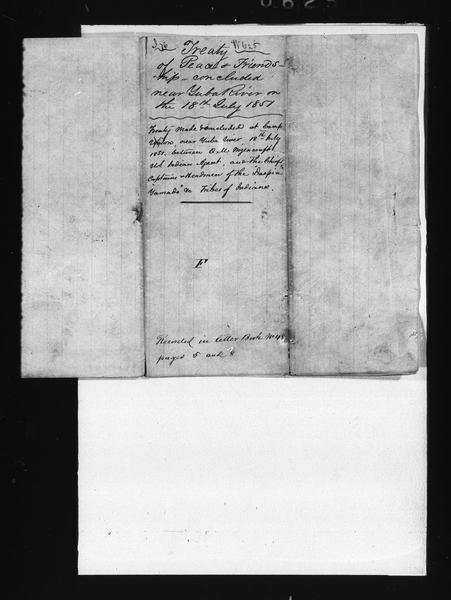 Treaty W625
of Peace & Friend-
ship - concluded
near Yuba River on
the 18th July 1851
Treaty Made & concluded at Camp
Union near Yuba River 18th July
1851. between O. M. Wozencraft
US Indian Agent, and the Chiefs
Captains & Headmen of the Daspia
Yamado &c Tribes of Indians.
F
Recorded in letter Book No 48
pages 5 and 8